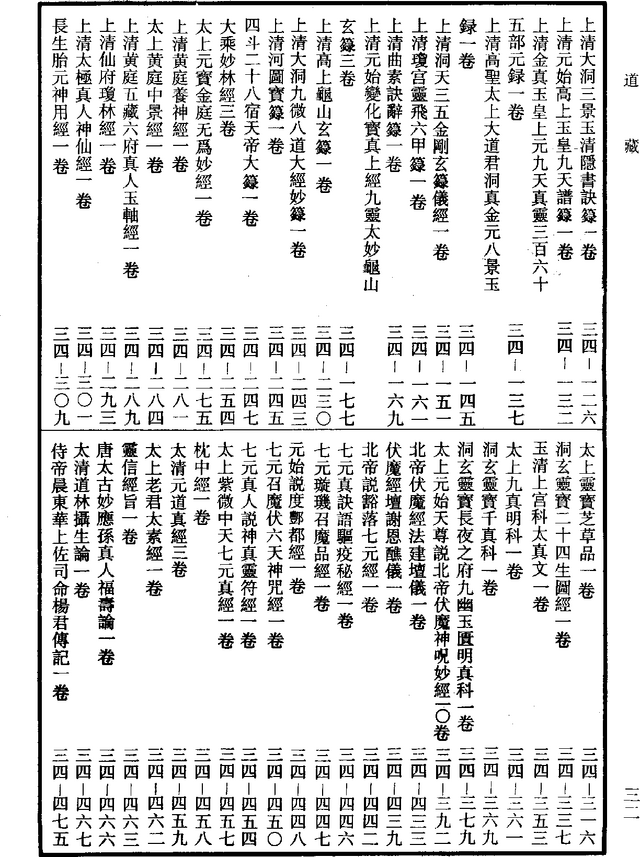 道藏
上清大洞三景玉清隱書訣籙一卷 三四-一二六
上清元始高上玉皇九天譜籙一卷 三四-一三二
上清金真玉皇上元九天真靈三百六十
五部元録一卷 三四-一三七
上清高聖太上大道君洞真金元八景玉
録一卷 三四-一四五
上清洞天三五金剛玄籙儀經一卷 三四-一五一
上清瓊宮靈飛六甲籙一卷 三四-一六一
上清曲素訣辭籙一卷 三四-一六九
上清元始變化寶真上經九靈太妙龜山
玄籙三卷 三四-一七七
上清高上龜山玄籙一卷 三四-二三〇
上清大洞九微八道大經妙籙一卷 三四-二四三
上清河圖寶籙一卷 三四-二四五
四斗二十八宿天帝大籙一卷 三四-二四七
大乘妙林經三卷 三四-二五四
太上元寶金庭无爲妙經一卷 三四-二七五
上清黄庭養神經一卷 三四-二八一
太上黄庭中景經一卷 三四-二八四
上清黄庭五藏六府真人玉軸經一卷 三四-二八九
上清仙府瓊林經一卷 三四-二九三
上清太極真人神仙經一卷 三四-三〇一
長生胎元神用經一卷 三四-三〇九
太上靈寶芝草品一卷 三四-三一六
洞玄靈寶二十四生圖經一卷 三四-三三七
玉清上宮科太真文一卷 三四-三五三
太上九真明科一卷 三四-三六一
洞玄靈寶千真科一卷 三四-三六九
洞玄靈寶長夜之府九幽玉匱明真科一卷 三四-三七九
太上元始天尊説北帝伏魔神呪妙經一〇卷 三四-三九二
北帝伏魔經法建壇儀一卷 三四-四三三
伏魔經壇謝恩醮儀一卷 三四-四三九
北帝説豁落七元經一卷 三四-四四二
七元真訣語驅疫秘經一卷 三四-四四六
七元璇璣召魔品經一卷 三四-四四七
元始説度酆都經一卷 三四-四四八
七元召魔伏六天神咒經一卷 三四-四五〇
七元真人説神真靈符經一卷 三四-四五四
太上紫微中天七元真經一卷 三四-四五七
枕中經一卷 三四-四五八
太清元道真經三卷 三四-四五九
太上老君太素經一卷 三四-四六二
靈信經旨一卷 三四-四六三
唐太古妙應孫真人福壽論一卷 三四-四六六
太清道林攝生論一卷 三四-四六七
侍帝晨東華上佐司命楊君傳記一卷 三四-四七五